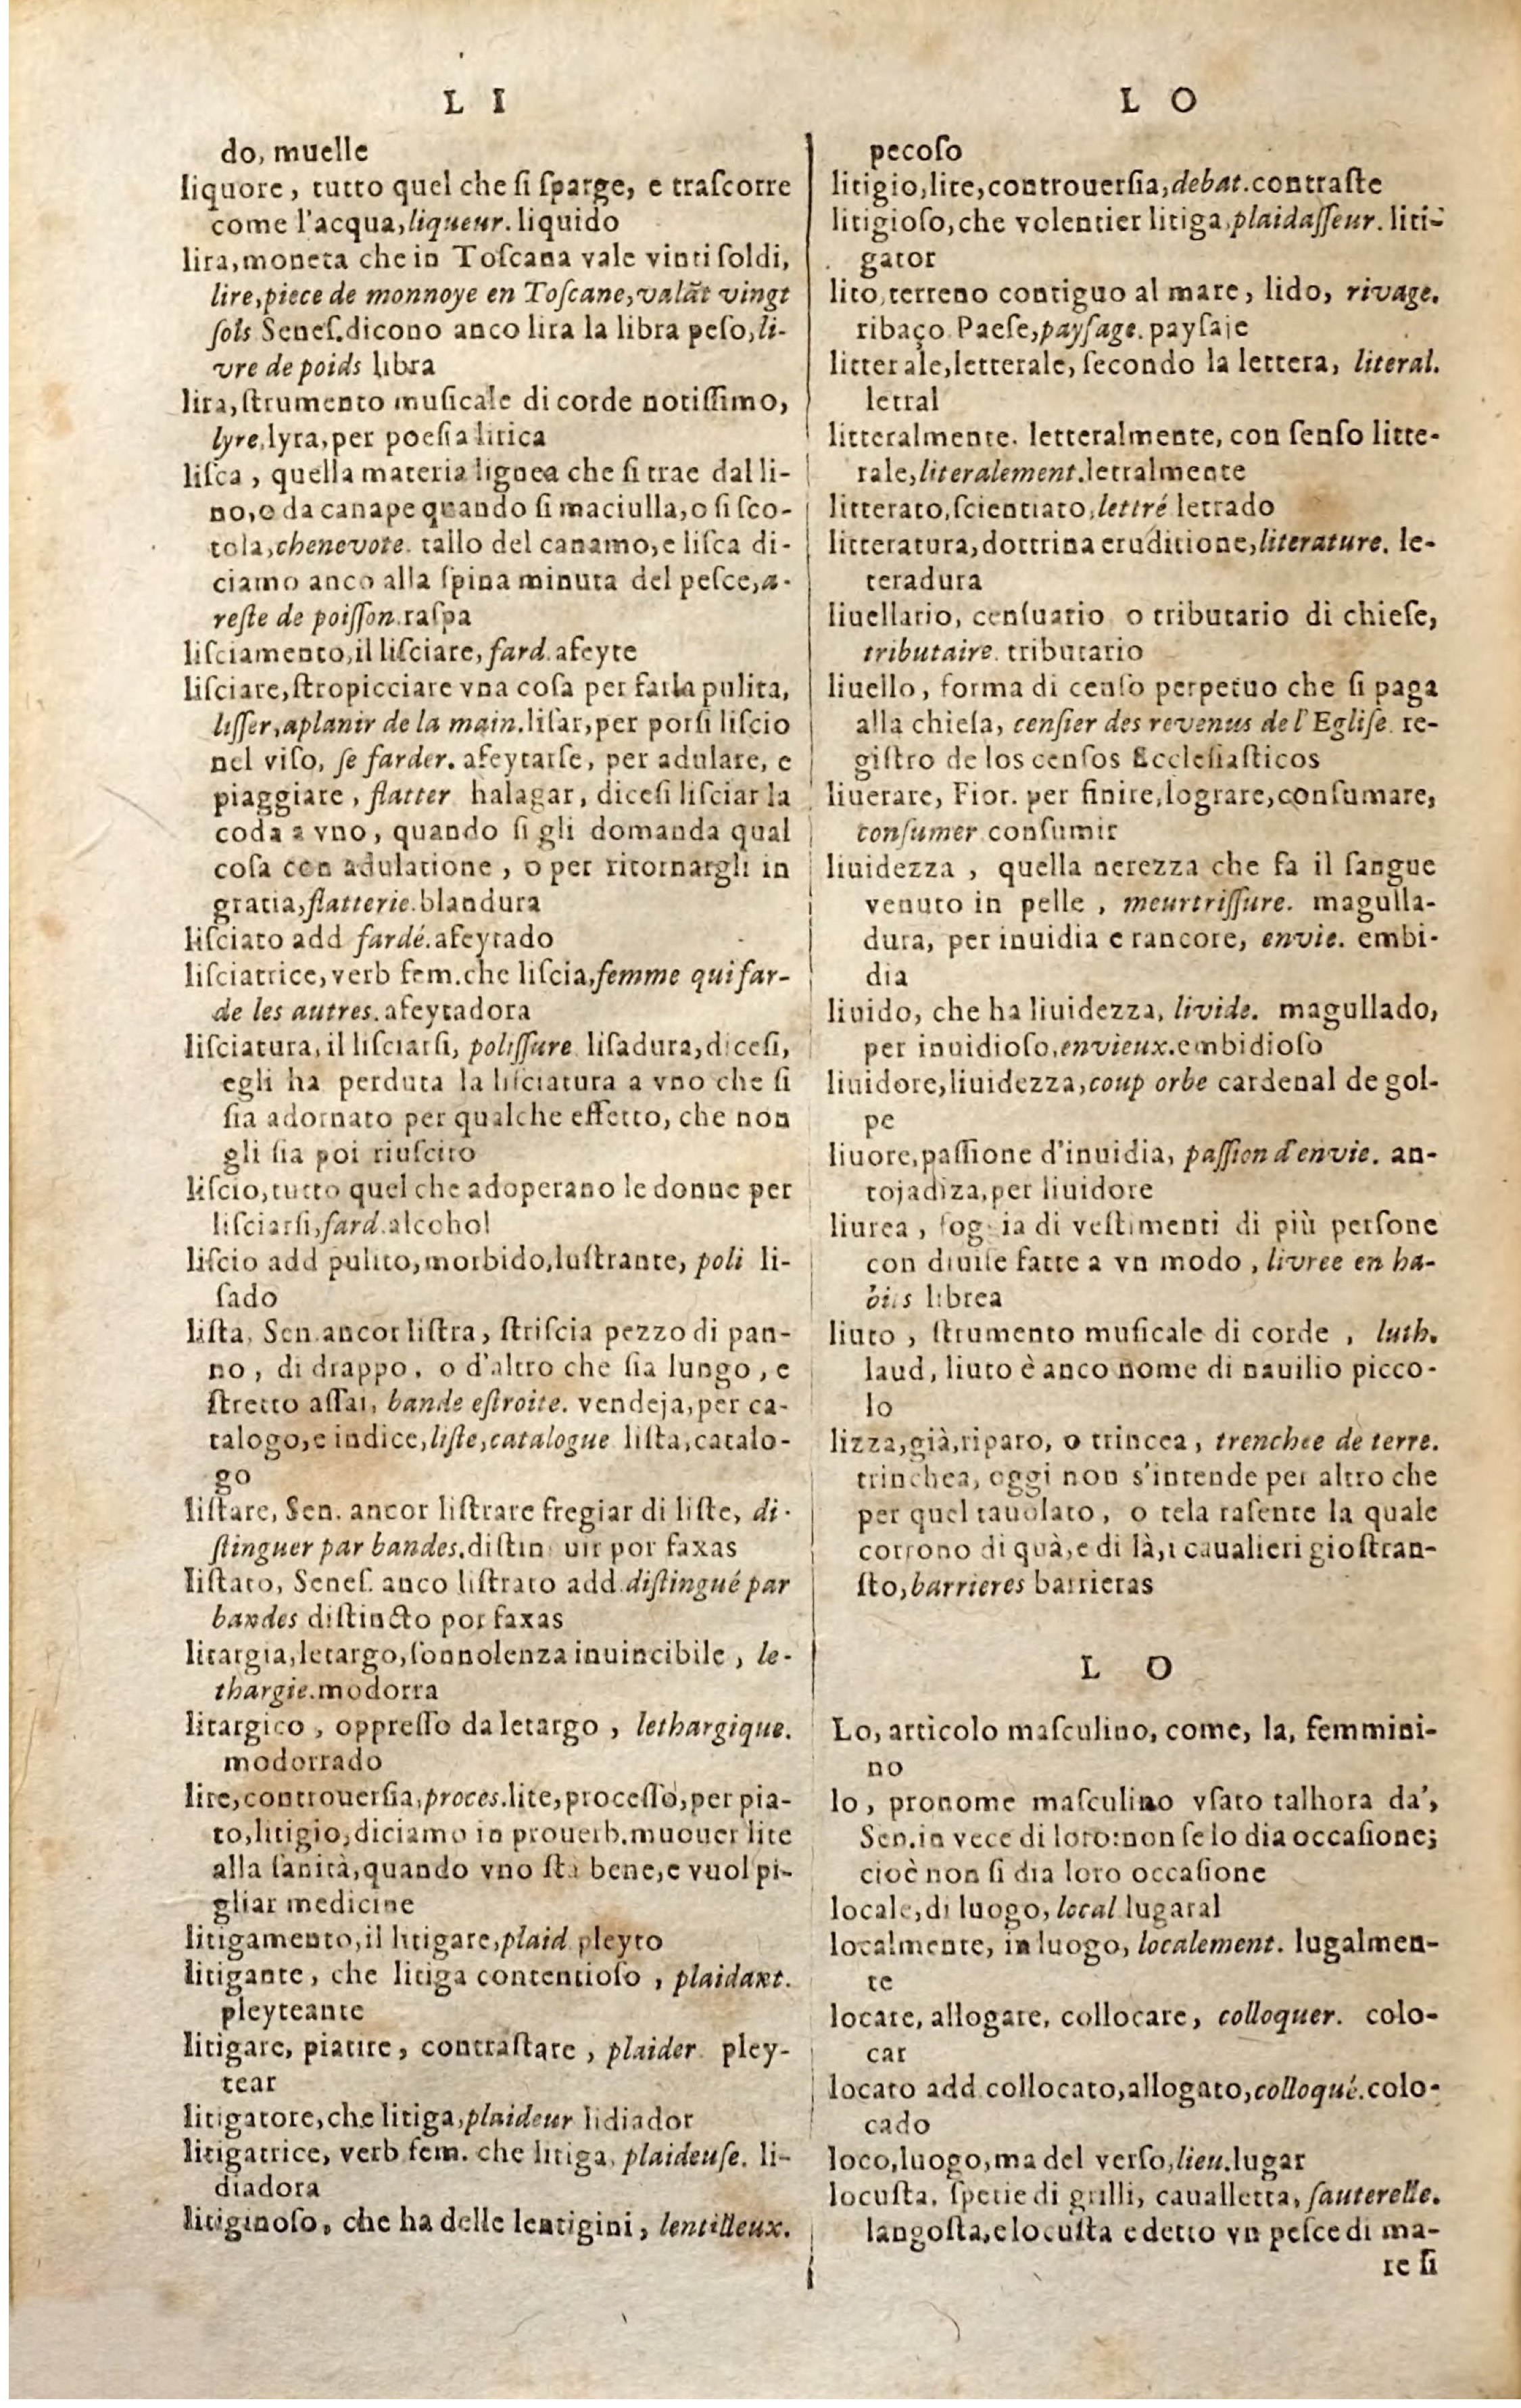 L I
do, muelle
liquore, tutto quel che ſi ſparge, e traſcorre
come l'acqua,liqueur.liquido
lira,moneta che in Toſcana vale vinti ſoldi,
lire,piece de monnoye en Toſcane,valãt vingt
ſols Seneſ.dicono anco lira la libra peſo,li-
vre de poids libra
lira,ſtrumento muſicale di corde notiſſimo,
lyre,lyra,per poeſia lirica
liſca, quella materia lignea che ſi trae dal li-
no,o da canape quando ſi maciulla,o ſi ſco-
tola,chenevote. tallo del canamo,e liſca di-
ciamo anco alla ſpina minuta del peſce,a-
reſte de poiſſon.raſpa
liſciamento,il liſciare,fard.afeyte
liſciare,ſtropicciare vna coſa per farla pulita,
liſſer,aplanir de la main.liſar,per porſi liſcio
nel viſo, ſe farder. afeytarſe, per adulare, e
piaggiare, flatter halagar, diceſi liſciar la
coda a vno, quando ſi gli domanda qual
coſa con adulatione, o per ritornargli in
gratia,flatterie.blandura
liſciato add fardé.afeytado
liſciatrice,verb fem.che liſcia,femme qui far-
de les autres.afeytadora
liſciatura,il liſciarſi, poliſſure liſadura,diceſi,
egli ha perduta la liſciatura a vno che ſi
ſia adornato per qualche effetto, che non
gli ſia poi riuſcito
liſcio,tutto quel che adoperano le donne per
liſciarſi,fard.alcohol
liſcio add pulito,morbido,luſtrante, poli li-
ſado
liſta, Sen.ancor liſtra, ſtriſcia pezzo di pan-
no, di drappo, o d'altro che ſia lungo, e
ſtretto aſſai, bande eſtroite. vendeja,per ca-
talogo,e indice,liſte,catalogue liſta,catalo-
go
liſtare, Sen. ancor liſtrare fregiar di liſte, di-
ſtinguer par bandes.diſtin uir por faxas
liſtato, Seneſ. anco liſtrato add.diſtingué par
bandes diſtincto por faxas
litargia,letargo,ſonnolenza inuincibile, le-
thargie.modorra
litargico, oppreſſo da letargo, lethargique.
modorrado
lite,controuerſia,proces.lite,proceſſo,per pia-
to,litigio,diciamo in prouerb.muouer lite
alla ſanità,quando vno ſta bene,e vuol pi-
gliar medicine
litigamento,il litigare,plaid pleyto
litigante, che litiga contentioſo, plaidant.
pleyteante
litigare, piatire, contraſtare, plaider. pley-
tear
litigatore,che litiga,plaideur lidiador
litigatrice, verb fem. che litiga, plaideuſe. li-
diadora
litiginoſo, che ha delle lentigini, lentilleux.
L O
pecoſo
litigio,lite,controuerſia,debat.contraſte
litigioſo,che volentier litiga,plaidaſſeur. liti-
gator
lito,terreno contiguo al mare, lido, rivage.
ribaço Paeſe,payſage.payſaje
litterale,letterale, ſecondo la lettera, literal.
letral
litteralmente. letteralmente, con ſenſo litte-
rale,literalement.letralmente
litterato,ſcientiato,lettré letrado
litteratura,dottrina eruditione,literature. le-
teradura
liuellario, cenſuario o tributario di chieſe,
tributaire. tributario
liuello, forma di cenſo perpetuo che ſi paga
alla chieſa, cenſier des revenus de l'Egliſe. re-
giſtro de los cenſos Eccleſiaſticos
liuerare, Fior. per finire,lograre,conſumare,
conſumer conſumir
liuidezza, quella nerezza che fa il ſangue
venuto in pelle, meurtriſſure. magulla-
dura, per inuidia e rancore, envie. embi-
dia
liuido, che ha liuidezza, livide. magullado,
per inuidioſo,envieux.embidioſo
liuidore,liuidezza,coup orbe cardenal de gol-
pe
liuore,paſſione d'inuidia, paſſion d'envie. an-
tojadiza,per liuidore
liurea, foggia di veſtimenti di più perſone
con diuiſe fatte a vn modo, livree en ha-
bits librea
liuto, ſtrumento muſicale di corde, luth.
laud, liuto è anco nome di nauilio picco-
lo
lizza,già,riparo, o trincea, trenchee de terre.
trinchea, oggi non s'intende per altro che
per quel tauolato, o tela raſente la quale
corrono di quà,e di là,i caualieri gioſtran-
ſto,barrieres barrieras
L O
Lo, articolo maſculino, come, la, femmini-
no
lo, pronome maſculino vſato talhora da',
Sen.in vece di loro:non ſe lo dia occaſione;
cioè non ſi dia loro occaſione
locale,di luogo,local lugaral
localmente, in luogo, localement. lugalmen-
te
locare, allogare, collocare, colloquer. colo-
car
locato add.collocato,allogato,colloqué.colo-
cado
loco,luogo,ma del verſo,lieu.lugar
locuſta, ſpetie di grilli, caualletta, ſauterelle.
langoſta,e locuſta e detto vn peſce di ma-
re ſi